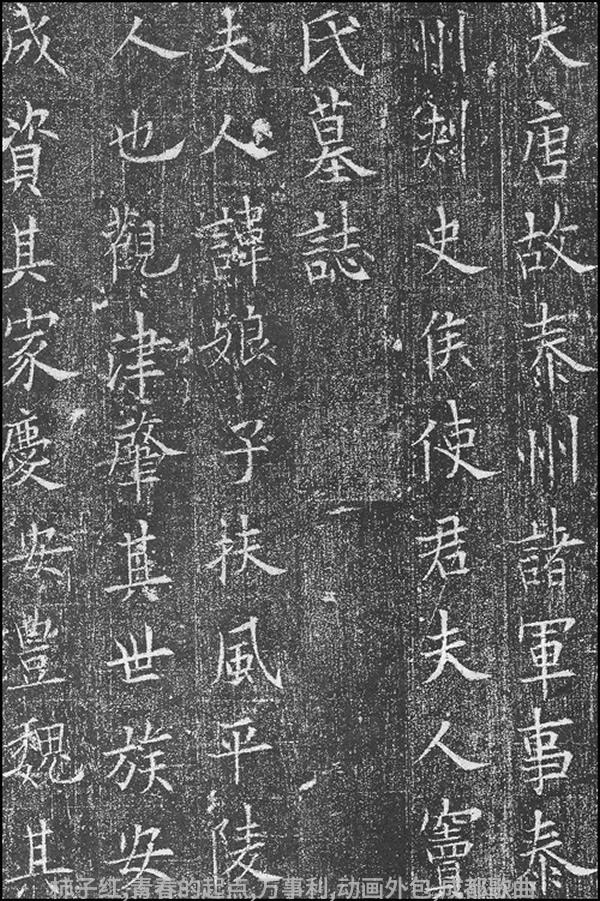 大唐故泰州諸軍事泰
州刺史侯使君夫人竇
氏墓誌
夫人諱娘子扶風平陵
人也觀津肇其世族安
成資其家慶安豐魏其
柿子红,青春的起点,万事利,动画外包,成都歌曲